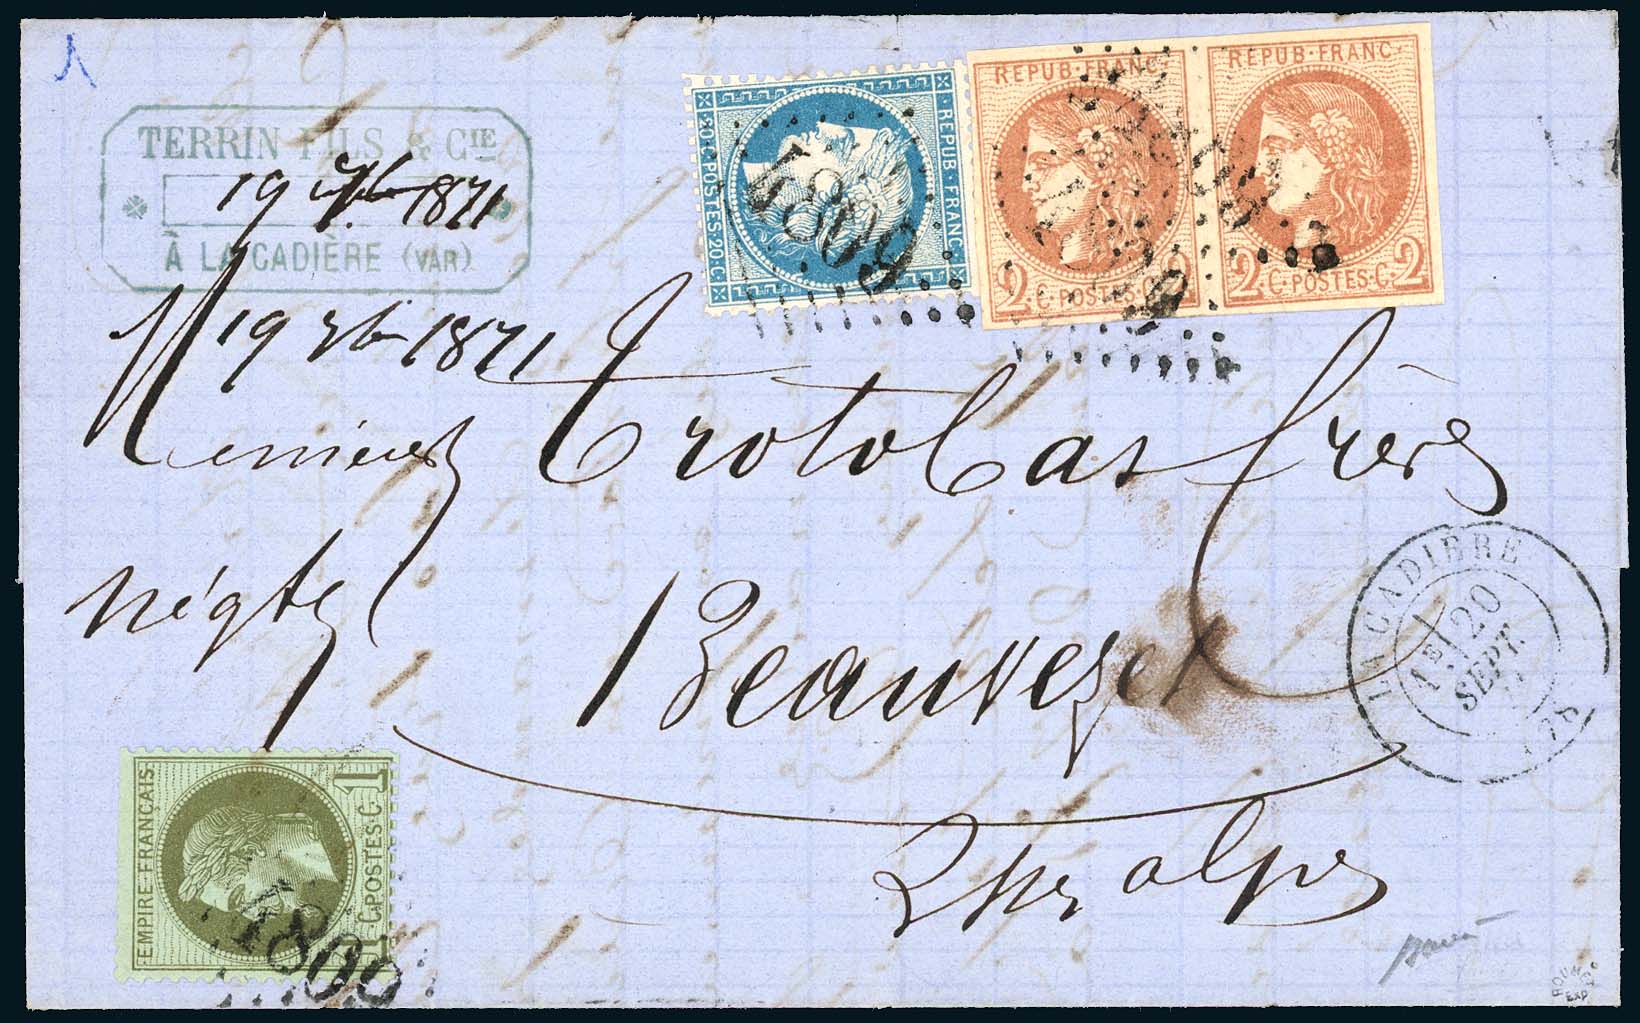 TERRIN FILS & CIE
19 7bre 1871
À LA CADIÈRE (VAR)
19 7bre 1871
REPUB·FRANC·
20·C·POSTES·20·C·
4809
REPUB·FRANC·
2·C·POSTES·C·2
REPUB·FRANC·
2·C·POSTES·C·2
4809
Messieurs Trotobas frères
négts
Beauvezet
LA CADIÈRE
1E
20
SEPT.
71
(78)
Bses alpes
EMPIRE·FRANÇAIS·
1·C·POSTES·C·1
4809
ROUMET
EXP